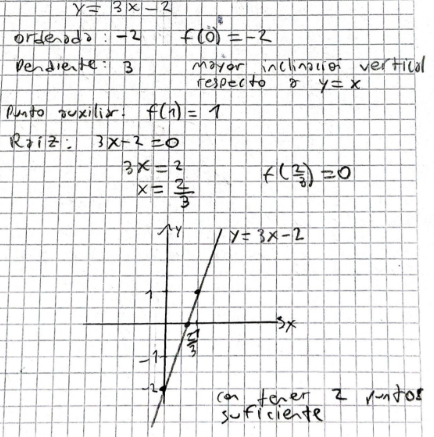 y = 3x - 2
ordenada: -2 f(0) = -2
Pendiente: 3 mayor inclinación vertical
respecto a y = x
Punto auxiliar: f(1) = 1
Raíz: 3x - 2 = 0
3x = 2
x = 2/3 f(2/3) = 0
y
y = 3x - 2
1
x
2/3
-1
-2
con tener 2 puntos
suficiente